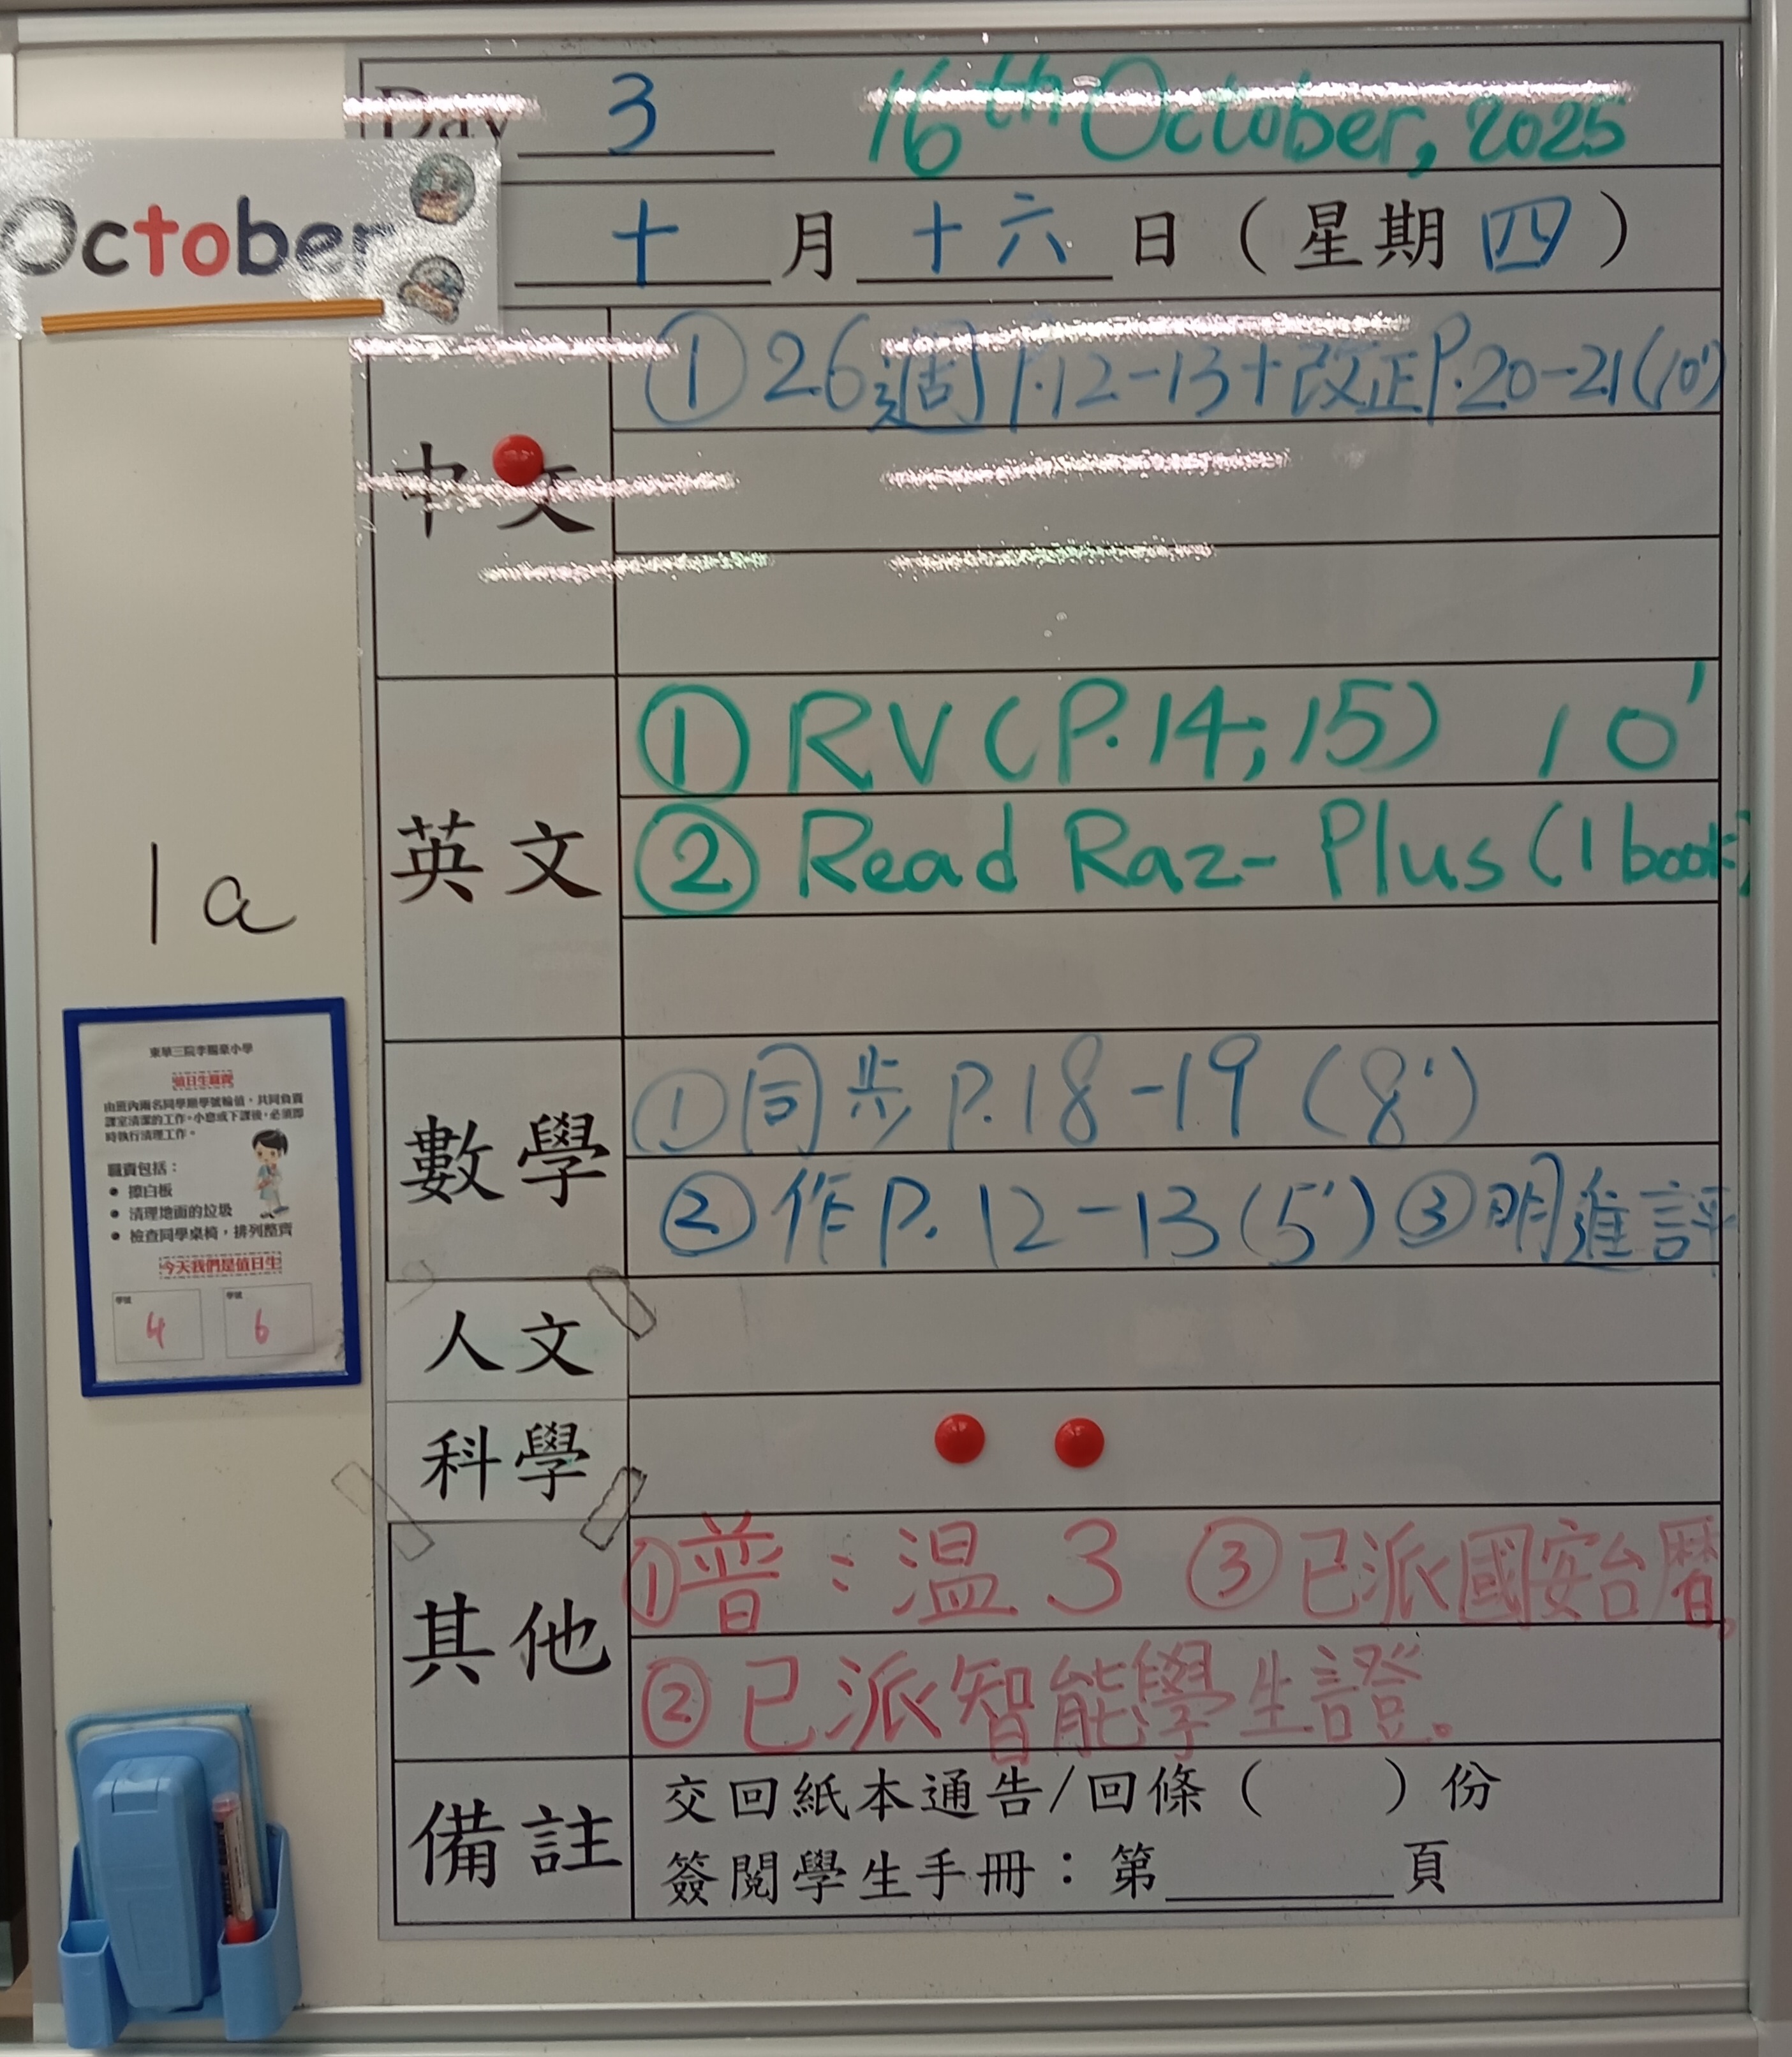 Day 3 16th October, 2025
October
十 月 十六 日（星期四）
中文
① 26週 P.12-13+改正P.20-21(10')
英文
① RV (P.14;15) 10'
② Read Raz-Plus (1 book)
1a
數學
① 同步 P.18-19 (8')
② 作P.12-13(5') ③ 明進評
人文
科學
其他
① 普：温3 ③ 已派國安台曆。
② 已派智能學生證。
備註
交回紙本通告/回條（ ）份
簽閱學生手冊：第______頁
東華三院李賜豪小學
值日生職責
由班內兩名同學順學號輪值，共同負責
課室清潔的工作。小息或下課後，必須即
時執行清理工作。
職責包括：
● 擦白板
● 清理地面的垃圾
● 檢查同學桌椅，排列整齊
今天我們是值日生
學號 學號
4 6